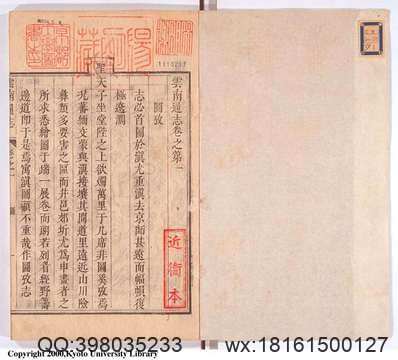 雲南通志卷之第一
圖攷
志必首圖於滇尤重滇去京師甚遠而幅幀復
極遼濶
聖天子坐堂陛之上欲燭萬里于几席非圖奚攷焉
況蕃緬支蒙與滇接壤其間道里遠近山川險
彝類多要害之區而井邑郊圻尤爲申畫者之
所求悉繪圖于牘一展卷而朗若列眉經野籌
邊道即于是焉寓滇圖顧不重哉作圖攷志
近衞本
QQ:398035233
wx:18161500127
Copyright 2000.Kyoto University Library